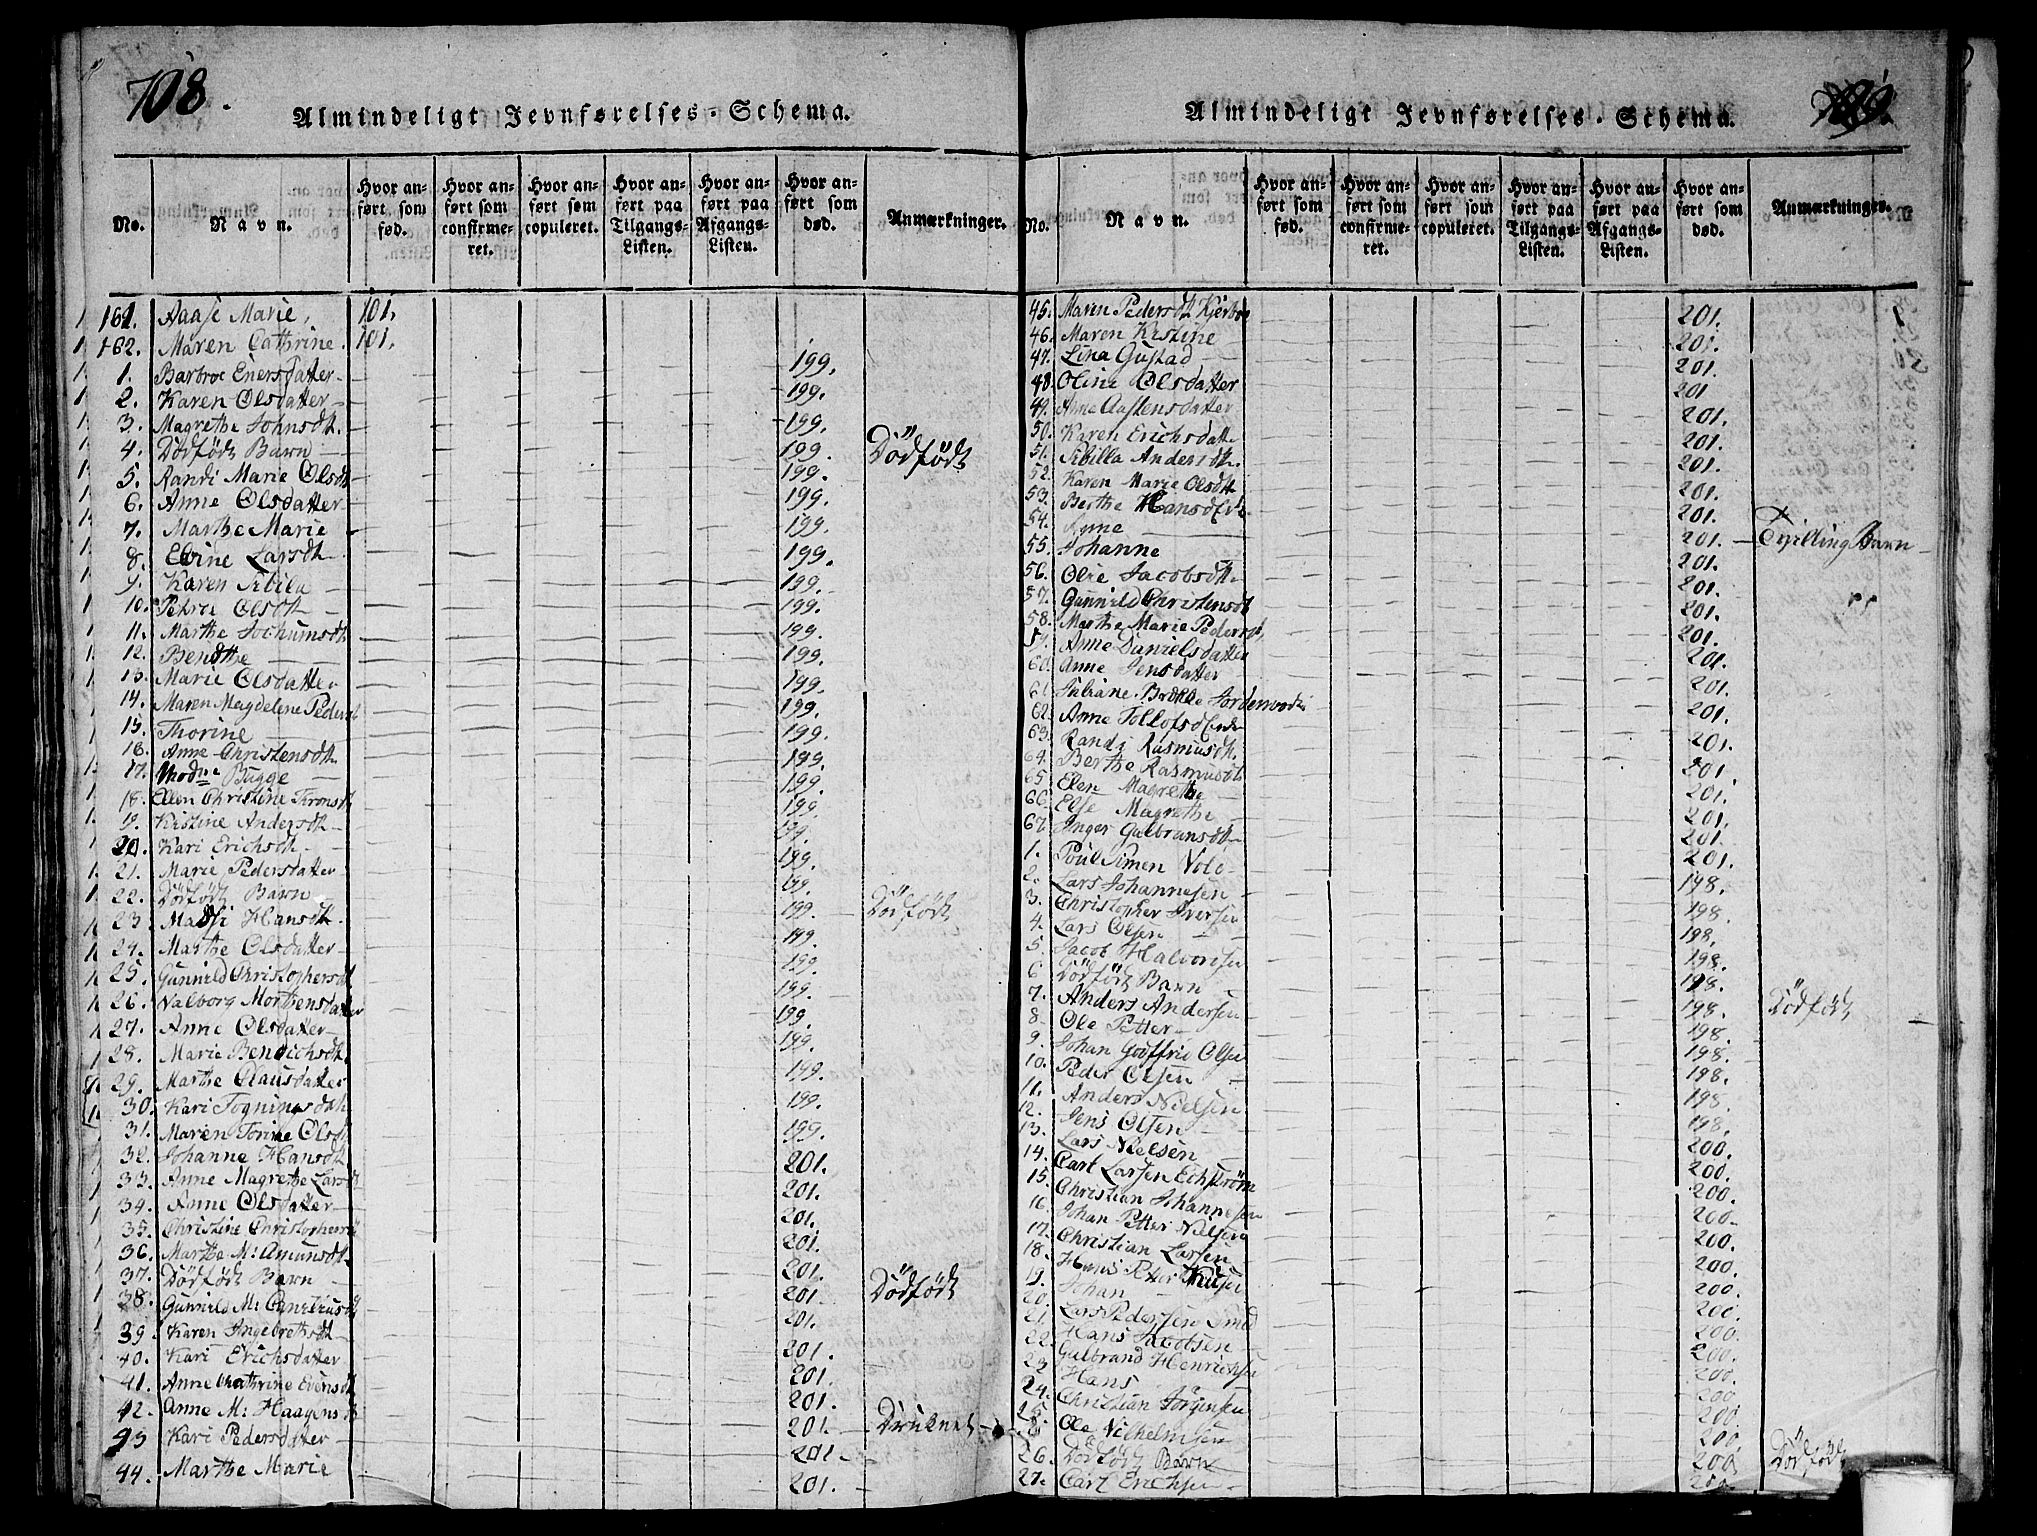 708.
Almindeligt Jevnførelses-Schema.
No.
Navn.
Hvor anført som fød.
Hvor anført som confirmeret.
Hvor anført som copuleret.
Hvor anført paa Tilgangs-Listen.
Hvor anført paa Afgangs-Listen.
Hvor anført som død.
Anmærkninger.
161. Aase Marie, 101.
162. Maren Cathrine. 101.
1. Barbroe Enersdatter 199.
2. Karen Olsdatter 199.
3. Magrethe Johnsdt. 199.
4. Dödfödt Barn 199. Dödfödt
5. Randi Marie Olsdt 199.
6. Anne Olsdatter 199.
7. Marthe Marie 199.
8. Eline Larsdt 199.
9. Karen Sibila 199.
10. Petra Olsdt 199.
11. Marthe Jochumsdt 199.
12. Bendthe 199.
13. Marie Olsdatter 199.
14. Maren Magdelene Pedersdt 199.
15. Thorine 199.
16. Anne Christensdt. 199.
17. Bugge 199.
18. Ellen Christine Thronsdt 199.
19. Kistine Andersdt 199.
20. Kari Erichsdt. 199.
21. Marie Pedersdatter 199.
22. Dödfödt Barn 199. Dödfödt
23. Hansdt. 199.
24. Marthe Olsdatter 199.
25. Gunnild Christophersdt 199.
26. Valborg Morthensdatter 199.
27. Anne Olsdatter 199.
28. Marie Bendichsdt. 199.
29. Marthe Clausdatter 199.
30. Kari 199.
31. Maren Torine Olsdt 201.
32. Johanne Hansdt 201.
33. Anne Magrethe Larsdt 201.
34. Anne Olsdatter 201.
35. Christine Christophersdt 201.
36. Marthe M: Amunsdt 201.
37. Dödfödt Barn 201. Dödfödt
38. Gunnild M: 201.
39. Karen Ingebrethsdt 201.
40. Kari Erichsdatter 201.
41. Anne Chathrine Evensdt 201.
42. Anne M: Haagensdt 201. Druknet
43 Kari Pedersdatter 201.
44. Marthe Marie 201.
Almindeligt Jevnførelses-Schema.
No.
Navn.
Hvor anført som fød.
Hvor anført som confirmeret.
Hvor anført som copuleret.
Hvor anført paa Tilgangs-Listen.
Hvor anført paa Afgangs-Listen.
Hvor anført som død.
Anmærkninger.
45. Maren Pedersdt Kjerboe 201.
46. Maren Kistine 201.
47. Lina Gustad 201.
48. Oline Olsdatter 201
49. Anne Aastensdatter 201.
50. Karen Erichsdatter 201.
51. Sibilla Andersdt. 201.
52. Karen Marie Olsdt 201.
53. Berthe Hansdt 201.
54. Agne 201. Tvilling Barn
55. Johanne 201.
56. Olie Jacobsdt 201.
57. Gunnild Christensdt 201.
58. Marthe Marie Pedersdt, 201.
59. Anne Danielsdatter 201.
60. Anne Jensdatter 201.
61. Juliane 201.
62. Anne Tollofsdt 201.
63. Randi Rasmusdt. 201.
64. Berthe Rasmusdt 201.
65. Elen Magrethe 201.
66. Else Magrethe 201.
67. Inger Gulbransdt 201.
1. Poul Simen Vold 198.
2. Lars Johannesen 198.
3. Christopher Iversen 198.
4. Lars Olsen 198.
5. Jacob Halvorsen 198.
6. Dödfödt Barn 198. Dödfödt
7. Anders Andersen 198.
8. Ole Petter 198.
9. Johan Godffrie Olsen 198.
10. Peder Olsen 198.
11. Anders Nielsen 198.
12. Jens Olsen 200.
13. Lars Nielsen 200.
14. Carl Larsen Echstrøm 200.
15. Christian Johannesen 200.
16. Johan Petter Nielsen 200.
17. Christian Larsen 200.
18. Hans Petter 200.
19. Johan 200.
20. Lars Pedersen Smed 200.
21. Hans Jacobsen 200.
22. Gulbrand Henrichsen 200.
23 Hans 200.
24. Christian Jørgensen 200.
25. Ole Vilhelmsen 200.
26. Dödfödt Barn 200. Dödfödt
27. Carl Erichsen 200.